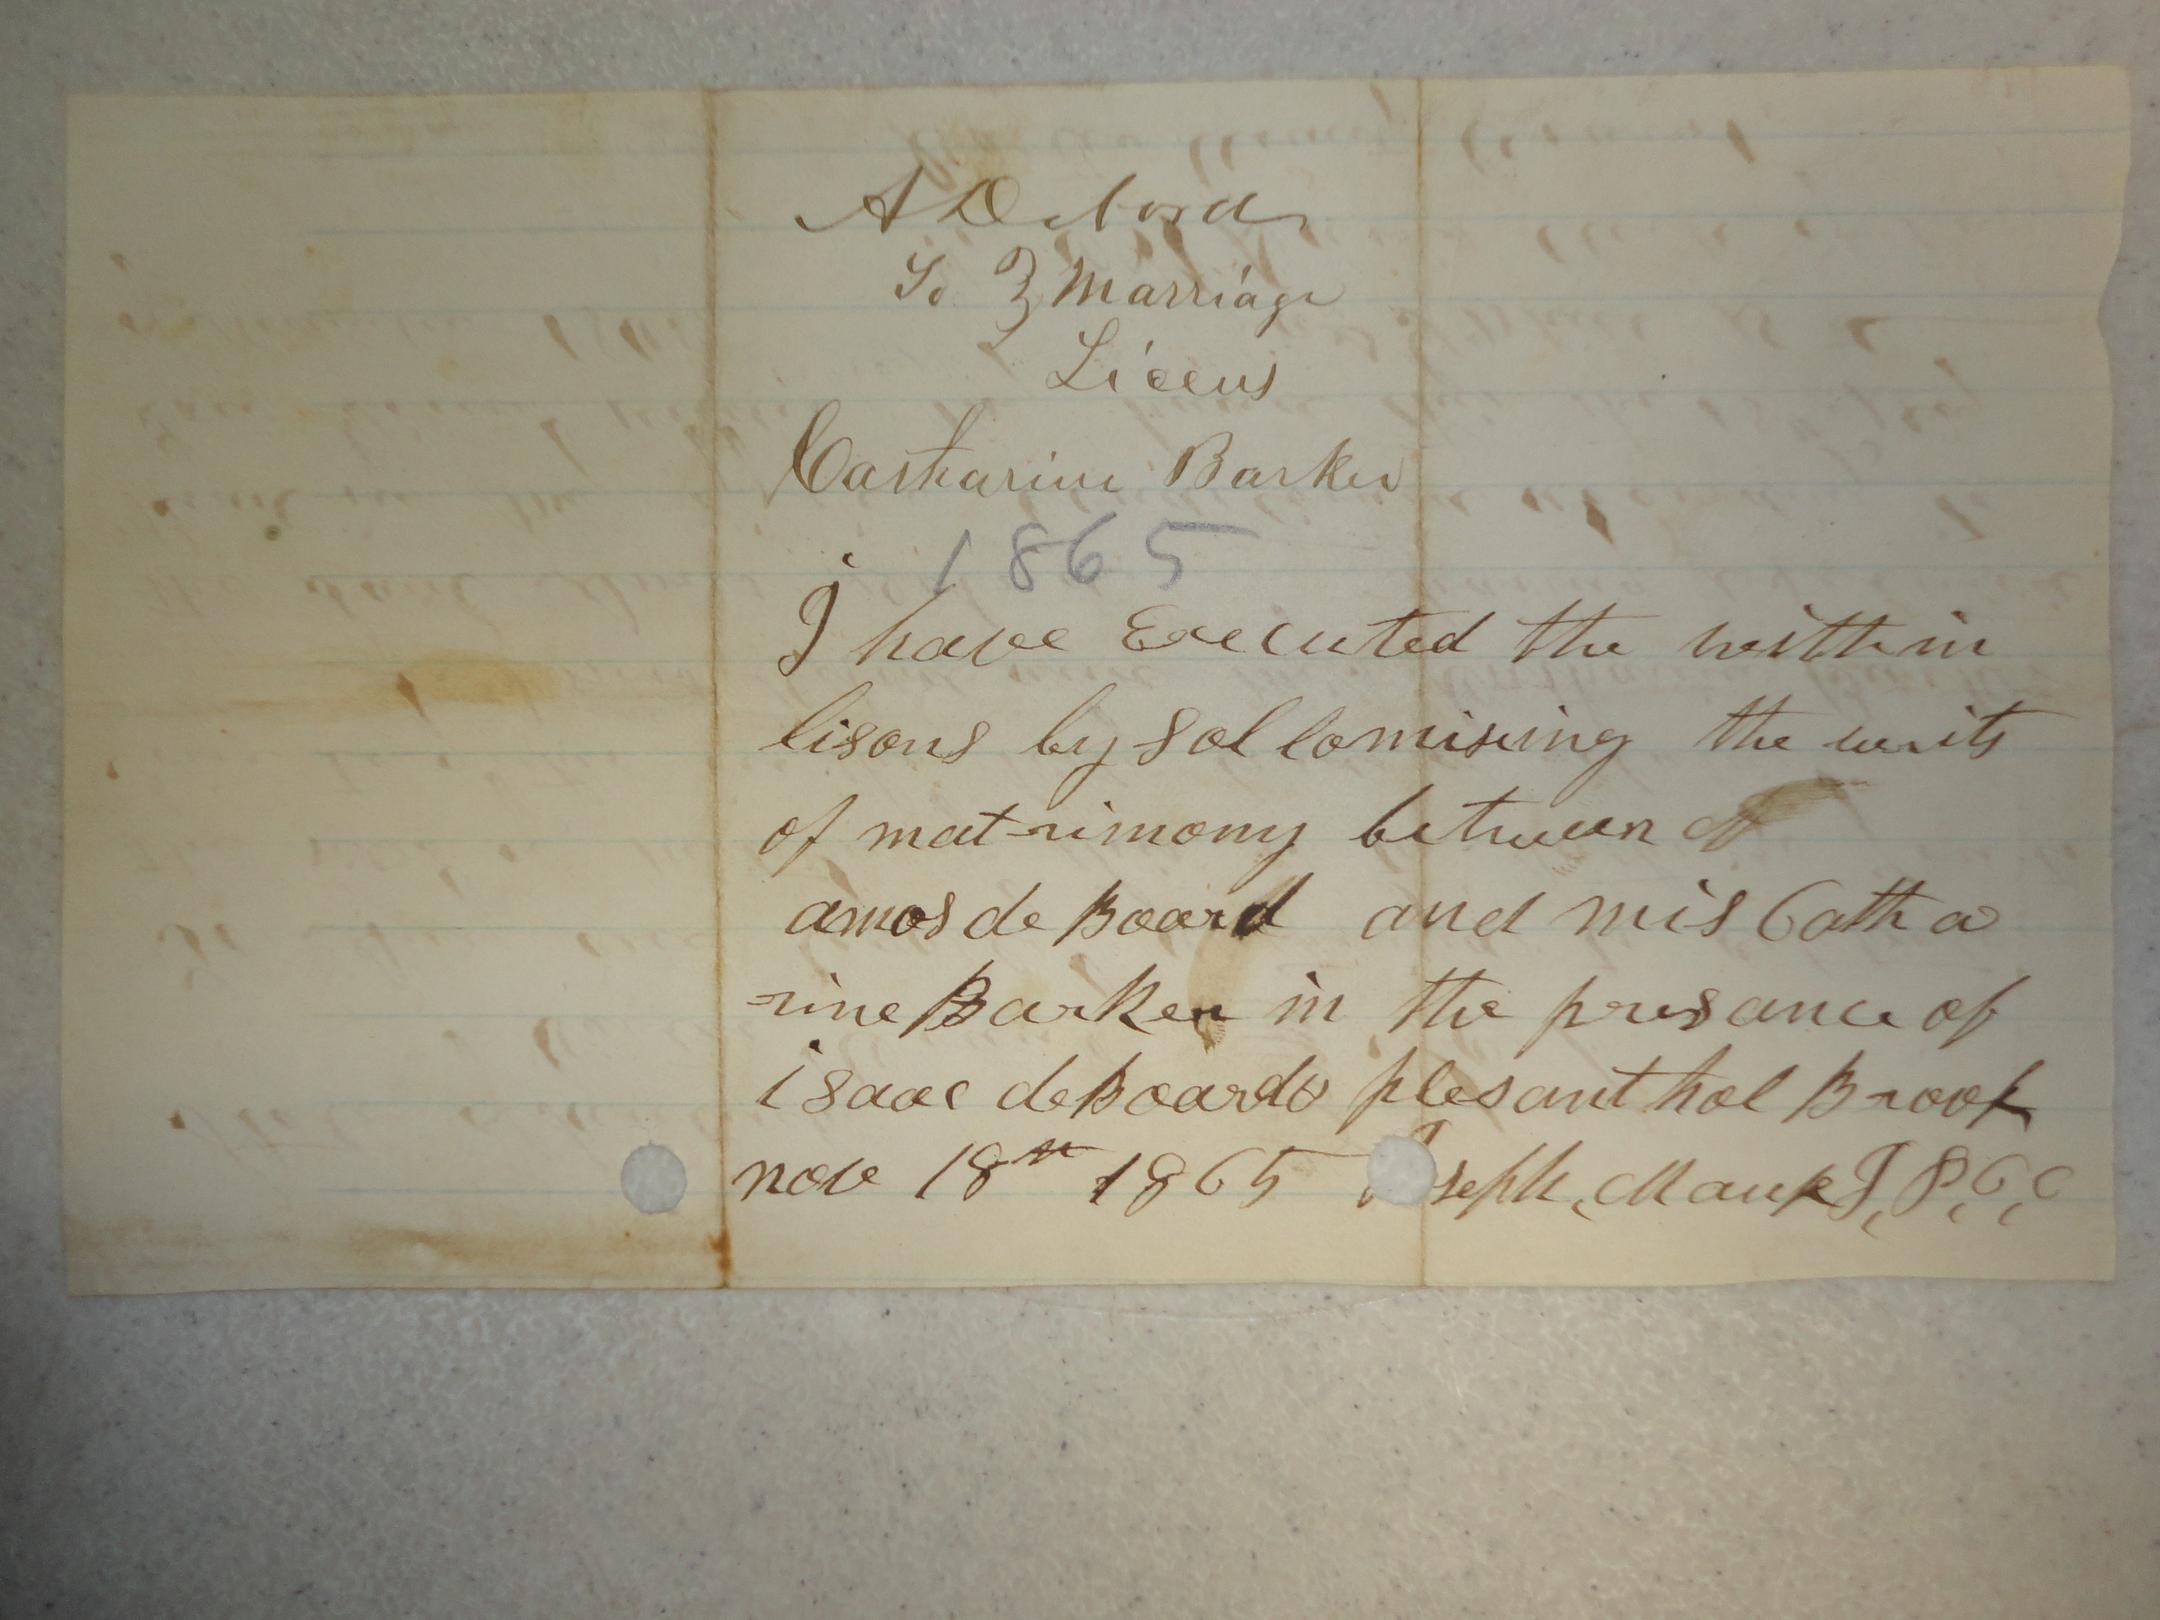 A Debord
To } Marriage
Licens
Castharine Barker
1865
I have Executed the within
lisons by sollomising the writs
of matrimony between
amos de Board and mis Catha
rine Barker in the presance of
isaac deBoards plesant hol Brook
nov 18th 1865 Joseph, Mauk J, P, C, C